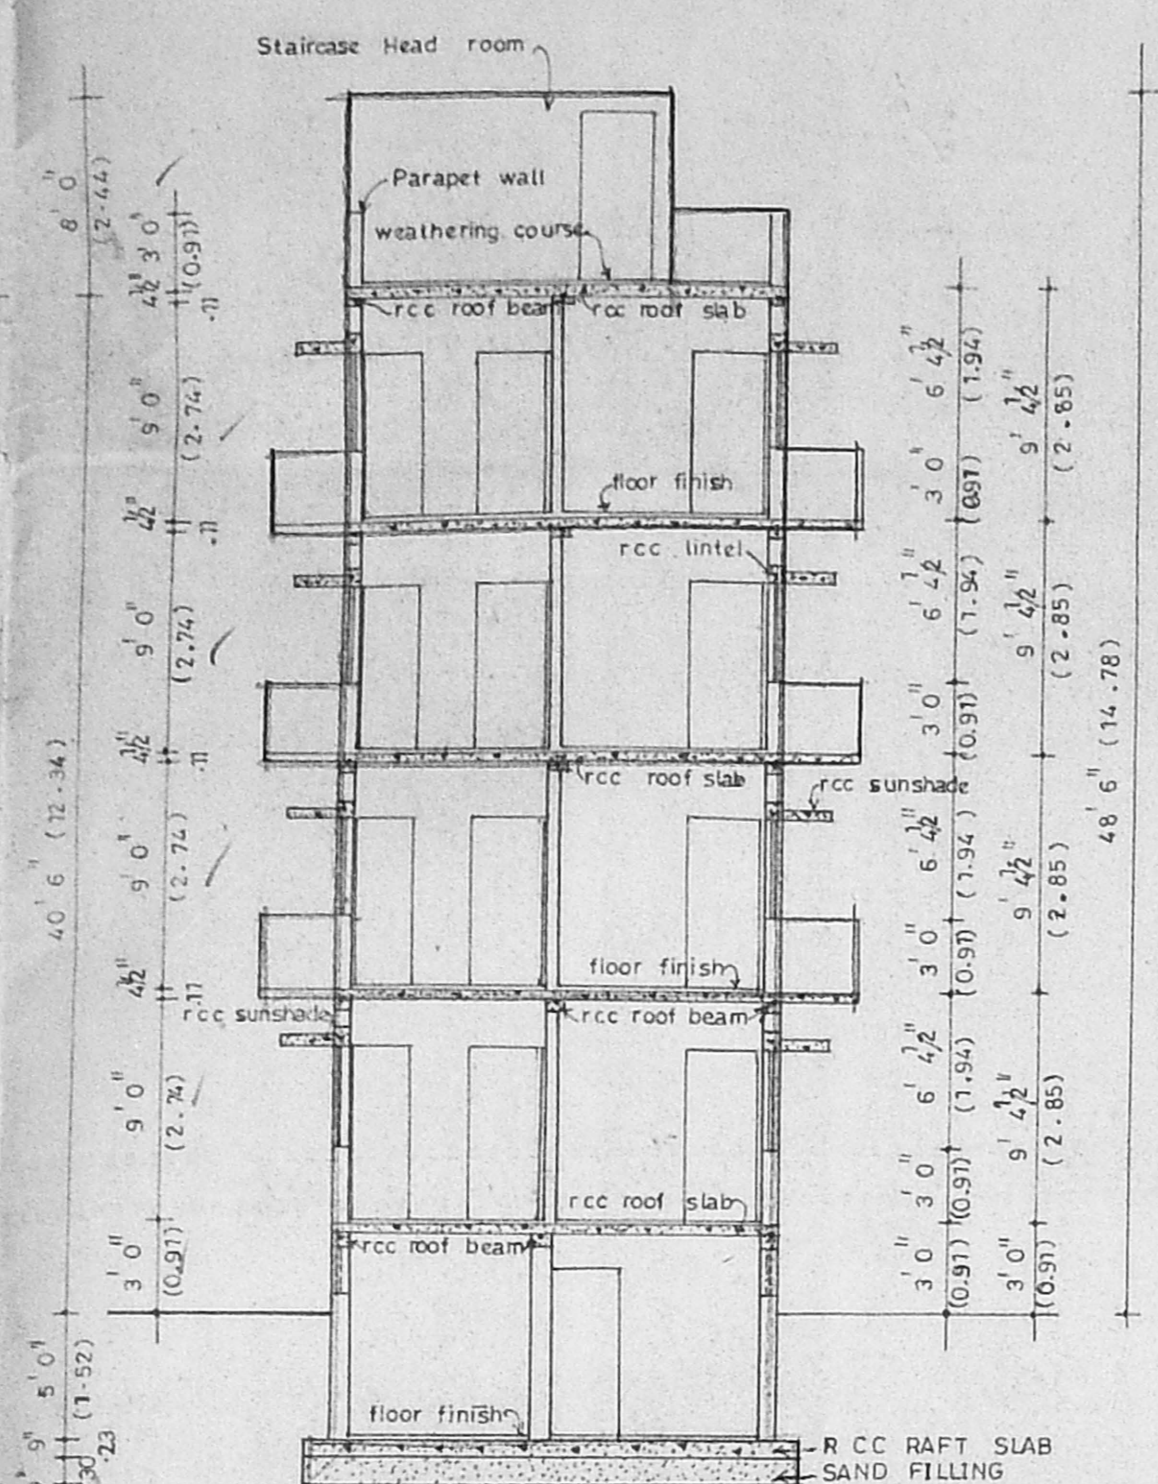 Staircase Head room
Parapet wall
weathering course
rcc roof beam
rcc roof slab
floor finish
rcc lintel
rcc roof slab
rcc sunshade
floor finish
rcc sunshade
rcc roof beam
rcc roof slab
rcc roof beam
floor finish
R CC RAFT SLAB
SAND FILLING
8' 0"
(2.44)
40' 6" (12.34)
5' 0"
(1.52)
9"
.23
3' 0"
(0.91)
4½"
.11
9' 0"
(2.74)
4½"
.11
9' 0"
(2.74)
4½"
.11
9' 0"
(2.74)
4½"
.11
9' 0"
(2.74)
3' 0"
(0.91)
6' 4½"
(1.94)
3' 0"
(0.91)
6' 4½"
(1.94)
3' 0"
(0.91)
6' 4½"
(1.94)
3' 0"
(0.91)
6' 4½"
(1.94)
3' 0"
(0.91)
3' 0"
(0.91)
9' 4½"
(2.85)
9' 4½"
(2.85)
9' 4½"
(2.85)
9' 4½"
(2.85)
3' 0"
(0.91)
48' 6" (14.78)